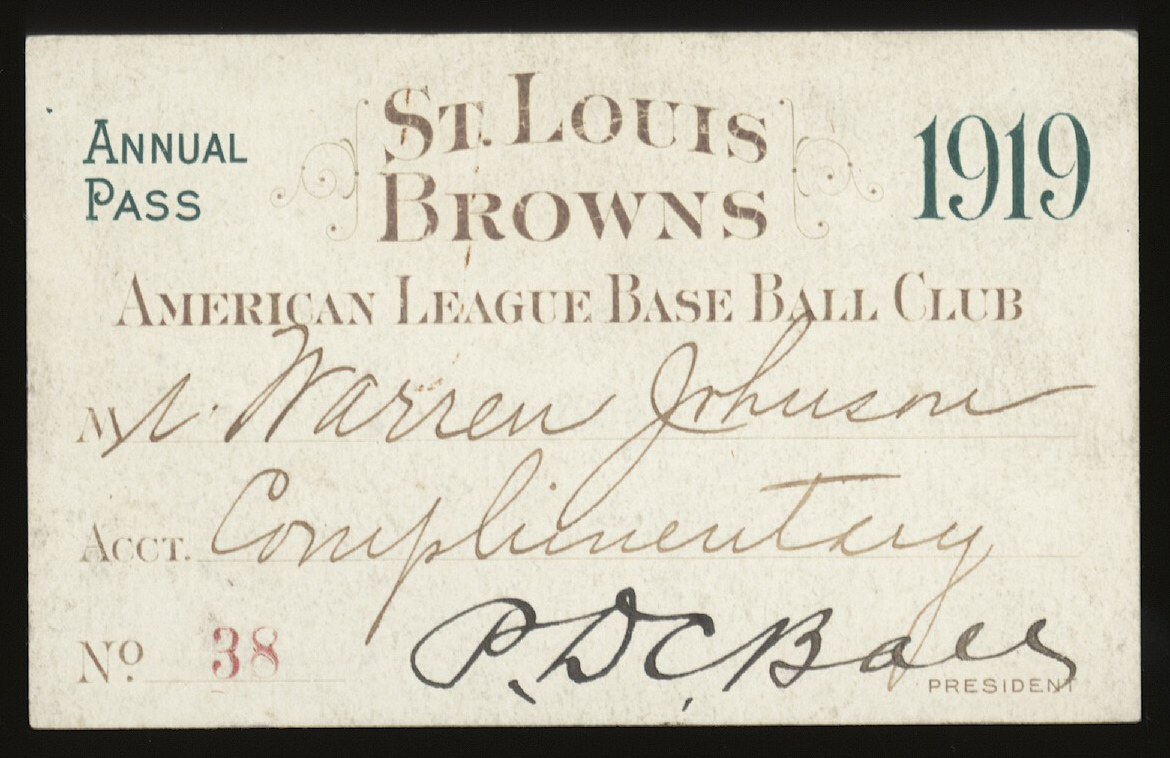 ANNUAL PASS
ST. LOUIS BROWNS
1919
AMERICAN LEAGUE BASE BALL CLUB
Mr. Warren Johnson
ACCT. Complimentary
No. 38
P. D. C. Ball
PRESIDENT